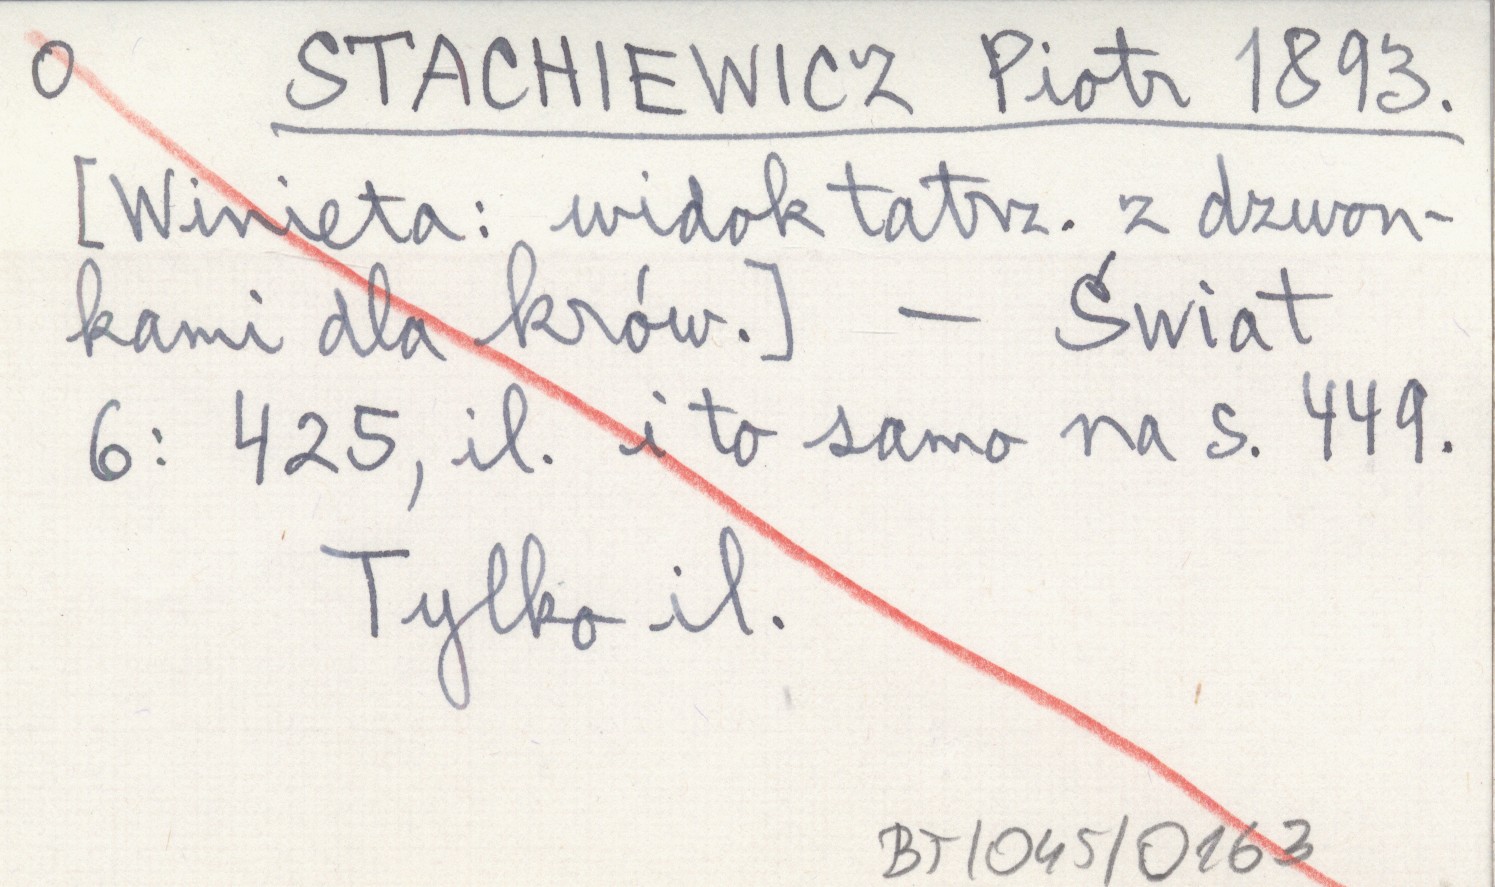 O STACHIEWICZ Piotr 1893.
[Winieta: widok tatrz. z dzwon-
kami dla krów.] — Świat
6: 425, il. i to samo na s. 449.
Tylko il.
BT/045/0163